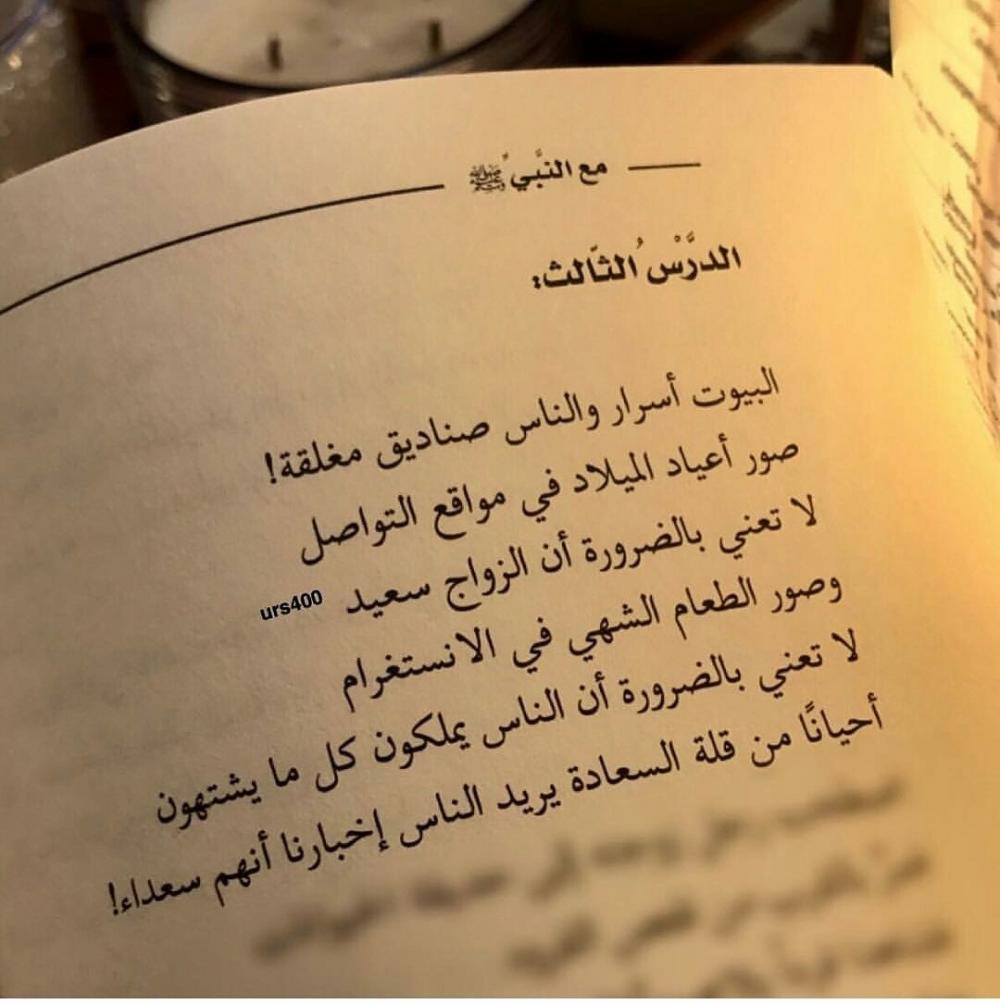 مع النَّبيِّ ﷺ
الدَّرْسُ الثّالث:
البيوت أسرار والناس صناديق مغلقة!
صور أعياد الميلاد في مواقع التواصل
لا تعني بالضرورة أن الزواج سعيد
urs400
وصور الطعام الشهي في الانستغرام
لا تعني بالضرورة أن الناس يملكون كل ما يشتهون
أحيانًا من قلة السعادة يريد الناس إخبارنا أنهم سعداء!